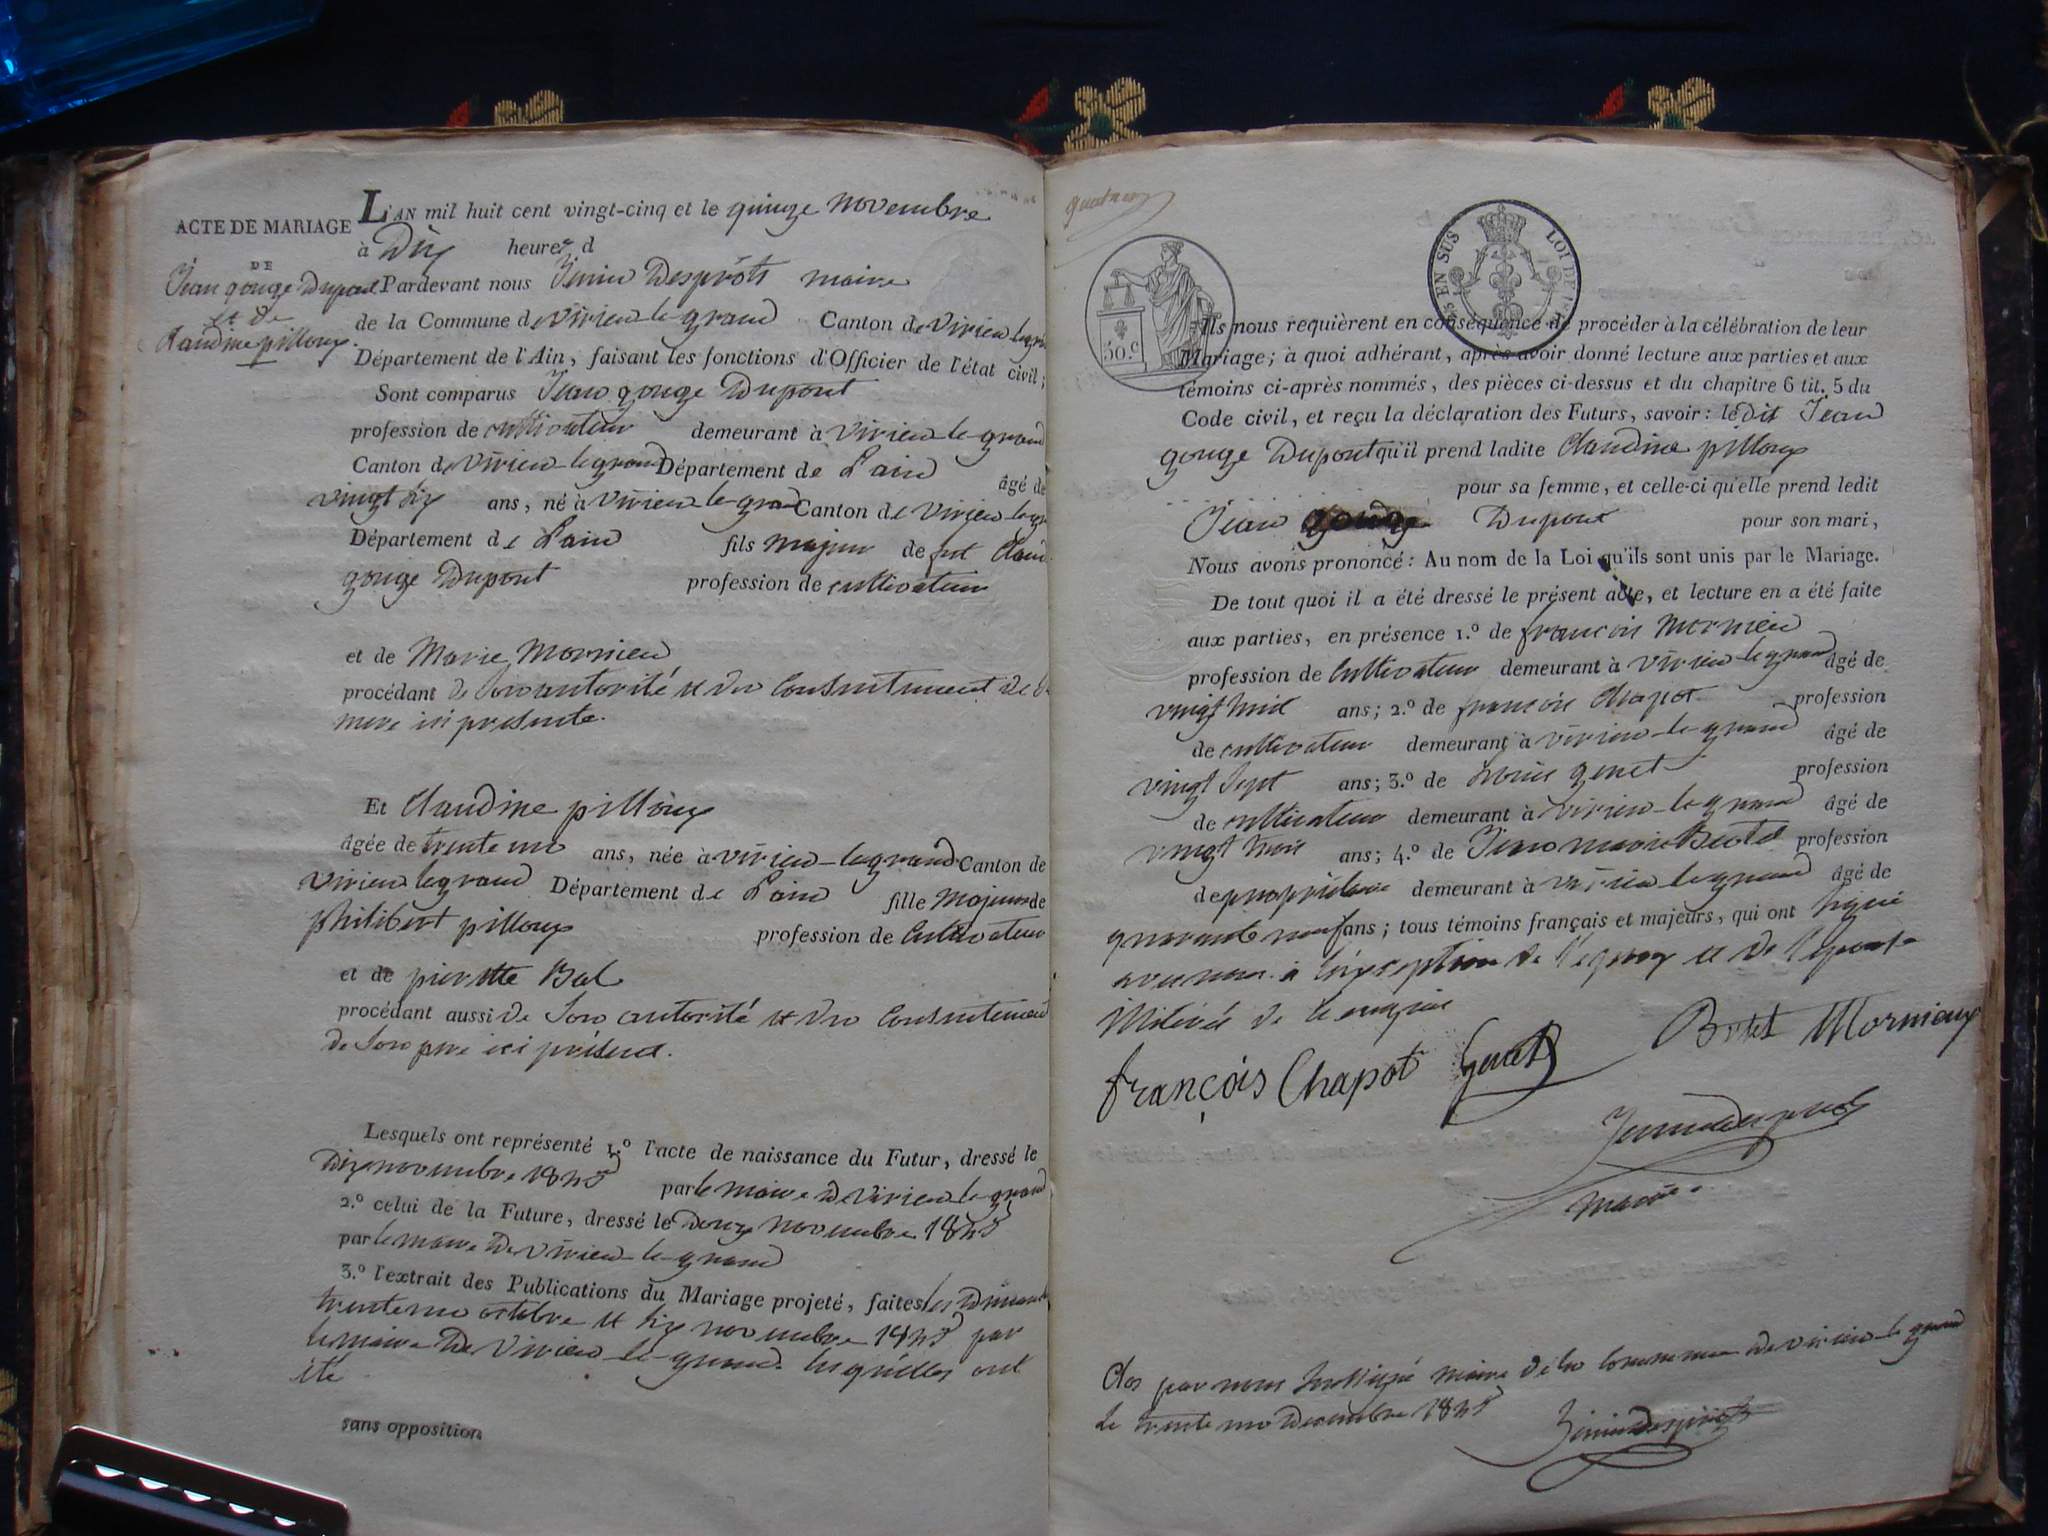 ACTE DE MARIAGE
DE
Jean gouge Dupont
et de
Claudine pilloux.
L'AN mil huit cent vingt-cinq et le quinze novembre
à Dix heures d
Pardevant nous Jenin Desprots maire
de la Commune de virieu-le-grand Canton de virieu le gra
Département de l'Ain, faisant les fonctions d'Officier de l'état civil;
Sont comparus Jean gouge Dupont
profession de cultivateur demeurant à virieu-le-grand
Canton de virieu-le-grand Département de L'ain âgé de
vingt six ans, né à virieu-le-grand Canton de virieu-le-gr
Département de L'ain fils majeur de fut Claude
gouge Dupont profession de cultivateur
et de Marie Mornieu
procédant de son autorité et du Consentement de sa
mere ici presente.
Et Claudine pilloux
âgée de trente un ans, née à virieu-le-grand Canton de
virieu-le-grand Département de L'ain fille majeure de
philibert pilloux profession de Cultivateur
et de pierrette Bal
procédant aussi de Son autorité et du Consentement
de Son pere ici présent.
Lesquels ont représenté 1.º l'acte de naissance du Futur, dressé le
Dix novembre 1825 par le maire de virieu-le-grand
2.º celui de la Future, dressé le Douze novembre 1825
par le maire de virieu-le-grand
3.º l'extrait des Publications du Mariage projeté, faites les Dimanches
trente un octobre et six novembre 1825 par
le maire de Virieu-le-grand. lesquelles ont
été
sans opposition
50.c
EN SUS LOI DE
Ils nous requièrent en conséquence de procéder à la célébration de leur
Mariage; à quoi adhérant, après avoir donné lecture aux parties et aux
témoins ci-après nommés, des pièces ci-dessus et du chapitre 6 tit. 5 du
Code civil, et reçu la déclaration des Futurs, savoir: le dit Jean
gouge Dupont qu'il prend ladite Claudine pilloux
pour sa femme, et celle-ci qu'elle prend ledit
Jean gouge Dupont pour son mari,
Nous avons prononcé: Au nom de la Loi qu'ils sont unis par le Mariage.
De tout quoi il a été dressé le présent acte, et lecture en a été faite
aux parties, en présence 1.º de françois Mornieu
profession de Cultivateur demeurant à virieu-le-grand âgé de
vingt huit ans; 2.º de françois Chapot profession
de cultivateur demeurant à virieu-le-grand âgé de
vingt Sept ans; 3.º de Louis genet profession
de cultivateur demeurant à virieu-le-grand âgé de
vingt trois ans; 4.º de Jean marie profession
de propriétaire demeurant à virieu-le-grand âgé de
quarante neuf ans; tous témoins français et majeurs, qui ont Signé
avec nous à l'exception de l'époux et de l'épouse
de ce enquis
françois Chapot Genet Mornieux
Jenin desprots
maire.
Clos par nous Soussigné maire de la Commune de virieu-le-grand
le trente un Decembre 1825 Jenin desprots